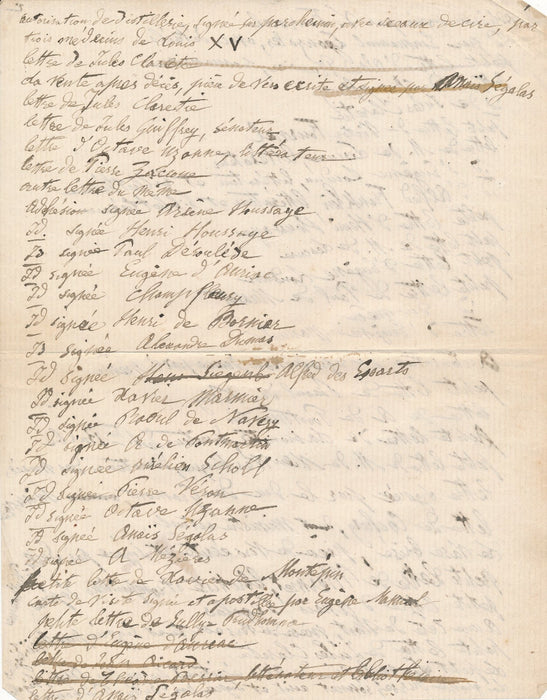 autorisation de distillerie, signée sur parchemin, avec sceaux de cire, par
trois médecins de Louis XV
lettre de Jules Claretie
La vente après décès, pièce de vers écrite et signée par Anaïs Ségalas
lettre de Jules Claretie
lettre de Jules Guiffrey, sénateur
lettre d'Octave Uzanne, littérateur
lettre de Pierre Zaccone
autre lettre du même
Adhésion signée Arsène Houssaye
Id signée Henri Houssaye
Id signée Paul Déroulède
Id signée Eugène d'Auriac
Id signée Champfleury
Id signée Henri de Bornier
Id signée Alexandre Dumas
Id signée Alfred des Essarts
Id signée Xavier Marmier
Id signée Raoul de Navery
Id signée A. de Pontmartin
Id signée Aurélien Scholl
Id signée Pierre Véron
Id signée Octave Uzanne
Id signée Anaïs Ségalas
Id signée A Mézières
petite lettre de Xavier de Montépin
carte de visite signée et apostillée par Eugène Manuel
petite lettre de Sully Prudhomme
lettre d'Eugène d'Auriac
lettre de
lettre de littérateur et bibliothécaire
lettre d'Anaïs Ségalas